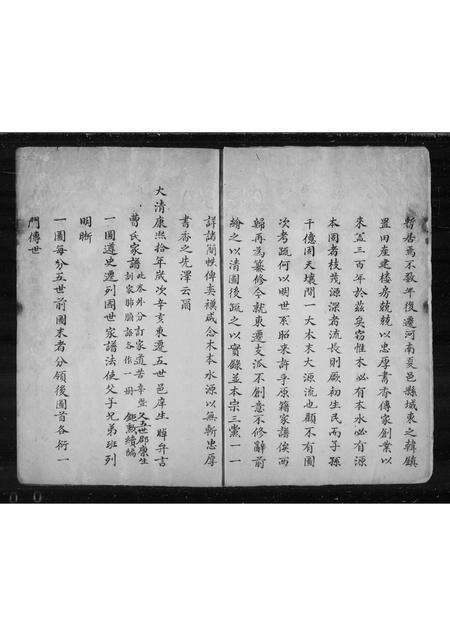 暫居焉不數年復遷河南夏邑縣城東之韓鎮
置田產建樓房兢兢以忠厚書香傳家創業以
來盖三百年於茲矣窃惟木必有本水必有源
本固者枝茂源深者流長則厥初生民而子孫
千億同天壤間一大本末大源流也顧不有圖
次考疏何以明世系昭来許乎原籍家譜俟西
歸再為纂修今就東遷支派不創意不修辭前
繪之以清圖後疏之以實錄並本宗三黨一一
詳諸簡帙俾奕禩咸念木本水源以無斬忠厚
書香之先澤云爾
大清康熙拾年歲次辛亥東遷五世邑庠生 暉弁言
曹氏家譜 此叁外分訂家道苦辛些 又五世郡庠生
訓家肺腑語各作一冊 鉅勲續編
一圖遵史遷列國世家譜法使父子兄弟班列
明晰
一圖每分五世前圖末者分領後圖首各衍一
門傳世